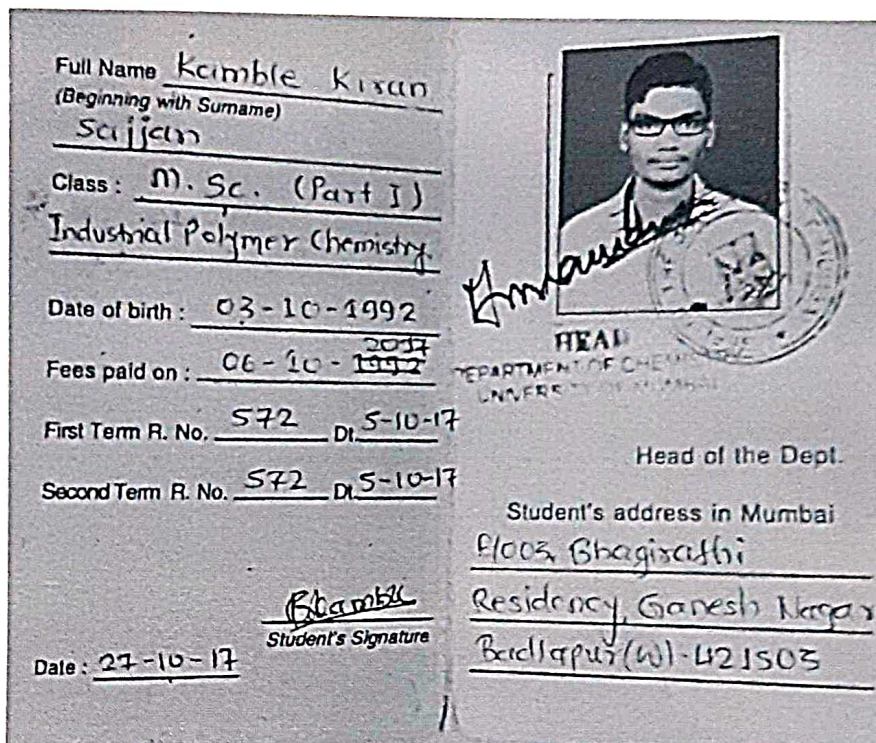 Full Name Kamble Kiran
(Beginning with Surname)
Sajjan
Class : M. Sc. (Part I)
Industrial Polymer Chemistry
Date of birth : 03-10-1992
2017
Fees paid on : 06-10-1992
First Term R. No. 572 Dt. 5-10-17
Second Term R. No. 572 Dt. 5-10-17
Student's Signature
Date : 27-10-17
HEAD
DEPARTMENT OF CHEMISTRY
UNIVERSITY OF MUMBAI
Head of the Dept.
Student's address in Mumbai
F/003, Bhagirathi
Residency, Ganesh Nagar
Badlapur (W)-421503